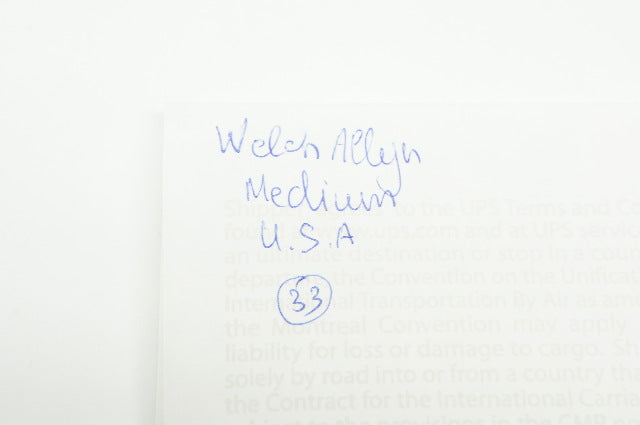 Welch Allyn
Medium
U.S.A
33
Shipper to the UPS Terms and Co
found www.ups.com and at UPS service
an ultimate destination or stop in a coun
depart the Convention on the Unificat
International Transportation By Air as am
the Montreal Convention may apply
liability for loss or damage to cargo. Sh
solely by road into or from a country tha
the Contract for the International Carria